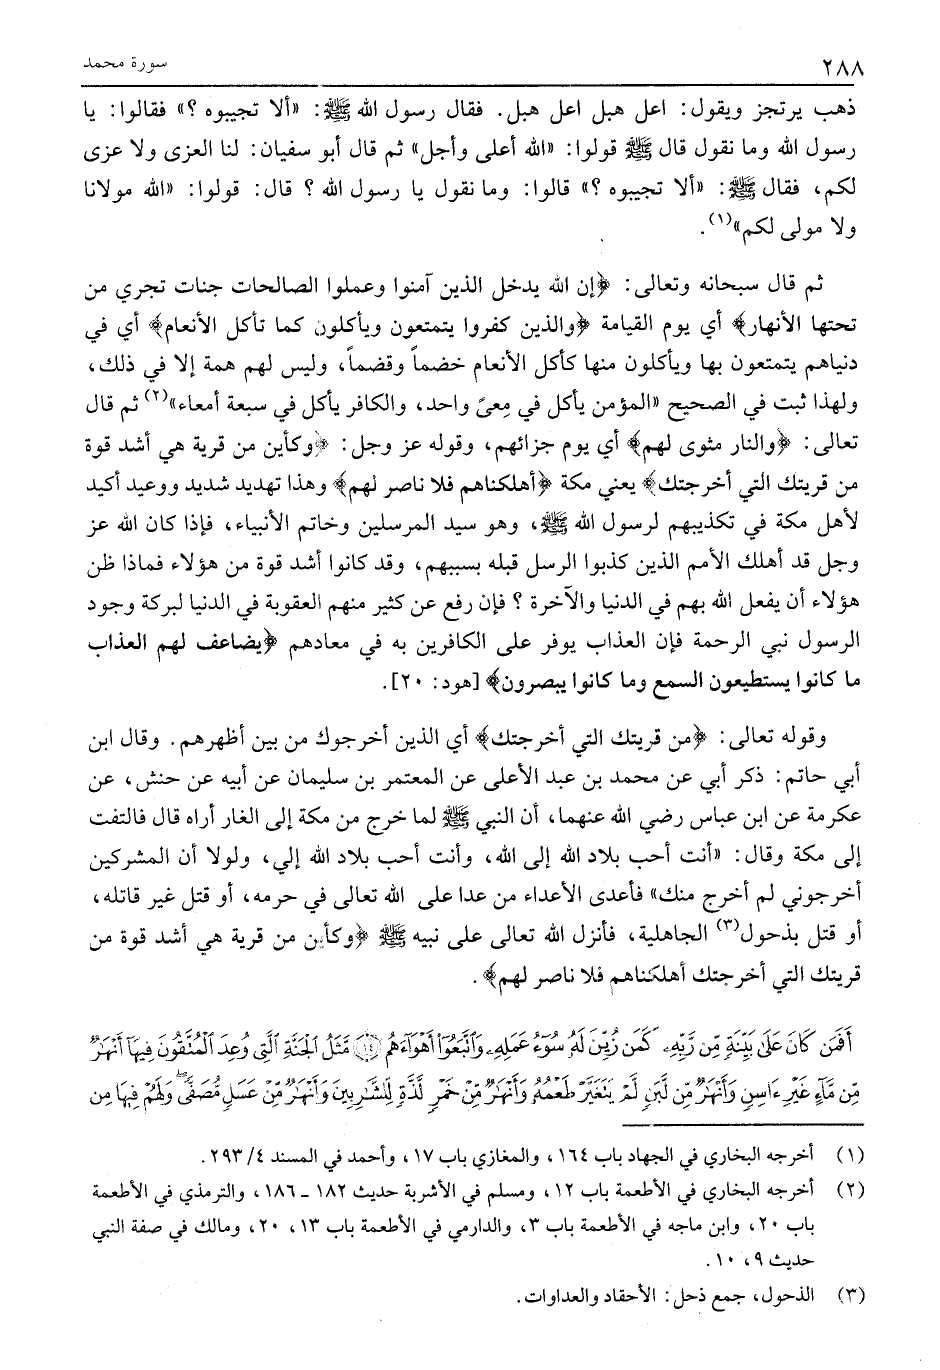 ٢٨٨ سورة محمد
ذهب يرتجز ويقول: اعل هبل اعل هبل. فقال رسول الله ﷺ: «ألا تجيبوه ؟» فقالوا: يا
رسول الله وما نقول قال ﷺ قولوا: «الله أعلى وأجل» ثم قال أبو سفيان: لنا العزى ولا عزى
لكم، فقال ﷺ: «ألا تجيبوه ؟» قالوا: وما نقول يا رسول الله ؟ قال: قولوا: «الله مولانا
ولا مولى لكم»(١).
ثم قال سبحانه وتعالى: ﴿إن الله يدخل الذين آمنوا وعملوا الصالحات جنات تجري من
تحتها الأنهار﴾ أي يوم القيامة ﴿والذين كفروا يتمتعون ويأكلون كما تأكل الأنعام﴾ أي في
دنياهم يتمتعون بها ويأكلون منها كأكل الأنعام خضماً وقضماً، وليس لهم همة إلا في ذلك،
ولهذا ثبت في الصحيح «المؤمن يأكل في مِعىً واحد، والكافر يأكل في سبعة أمعاء»(٢) ثم قال
تعالى: ﴿والنار مثوى لهم﴾ أي يوم جزائهم، وقوله عز وجل: ﴿وكأين من قرية هي أشد قوة
من قريتك التي أخرجتك﴾ يعني مكة ﴿أهلكناهم فلا ناصر لهم﴾ وهذا تهديد شديد ووعيد أكيد
لأهل مكة في تكذيبهم لرسول الله ﷺ، وهو سيد المرسلين وخاتم الأنبياء، فإذا كان الله عز
وجل قد أهلك الأمم الذين كذبوا الرسل قبله بسببهم، وقد كانوا أشد قوة من هؤلاء فماذا ظن
هؤلاء أن يفعل الله بهم في الدنيا والآخرة ؟ فإن رفع عن كثير منهم العقوبة في الدنيا لبركة وجود
الرسول نبي الرحمة فإن العذاب يوفر على الكافرين به في معادهم ﴿يضاعف لهم العذاب
ما كانوا يستطيعون السمع وما كانوا يبصرون﴾ [هود: ٢٠].
وقوله تعالى: ﴿من قريتك التي أخرجتك﴾ أي الذين أخرجوك من بين أظهرهم. وقال ابن
أبي حاتم: ذكر أبي عن محمد بن عبد الأعلى عن المعتمر بن سليمان عن أبيه عن حنش، عن
عكرمة عن ابن عباس رضي الله عنهما، أن النبي ﷺ لما خرج من مكة إلى الغار أراه قال فالتفت
إلى مكة وقال: «أنت أحب بلاد الله إلى الله، وأنت أحب بلاد الله إلي، ولولا أن المشركين
أخرجوني لم أخرج منك» فأعدى الأعداء من عدا على الله تعالى في حرمه، أو قتل غير قاتله،
أو قتل بذحول(٣) الجاهلية، فأنزل الله تعالى على نبيه ﷺ ﴿وكأين من قرية هي أشد قوة من
قريتك التي أخرجتك أهلكناهم فلا ناصر لهم﴾.
أَفَمَن كَانَ عَلَىٰ بَيِّنَةٍ مِّن رَّبِّهِۦ كَمَن زُيِّنَ لَهُۥ سُوٓءُ عَمَلِهِۦ وَٱتَّبَعُوٓا۟ أَهْوَآءَهُم ١٤ مَّثَلُ ٱلْجَنَّةِ ٱلَّتِى وُعِدَ ٱلْمُتَّقُونَ فِيهَآ أَنْهَٰرٌ
مِّن مَّآءٍ غَيْرِ ءَاسِنٍ وَأَنْهَٰرٌ مِّن لَّبَنٍ لَّمْ يَتَغَيَّرْ طَعْمُهُۥ وَأَنْهَٰرٌ مِّنْ خَمْرٍ لَّذَّةٍ لِّلشَّٰرِبِينَ وَأَنْهَٰرٌ مِّنْ عَسَلٍ مُّصَفًّى ۖ وَلَهُمْ فِيهَا مِن
(١) أخرجه البخاري في الجهاد باب ١٦٤، والمغازي باب ١٧، وأحمد في المسند ٤/ ٢٩٣.
(٢) أخرجه البخاري في الأطعمة باب ١٢، ومسلم في الأشربة حديث ١٨٢ ـ ١٨٦، والترمذي في الأطعمة
باب ٢٠، وابن ماجه في الأطعمة باب ٣، والدارمي في الأطعمة باب ١٣، ٢٠، ومالك في صفة النبي
حديث ٩، ١٠.
(٣) الذحول، جمع ذحل: الأحقاد والعداوات.